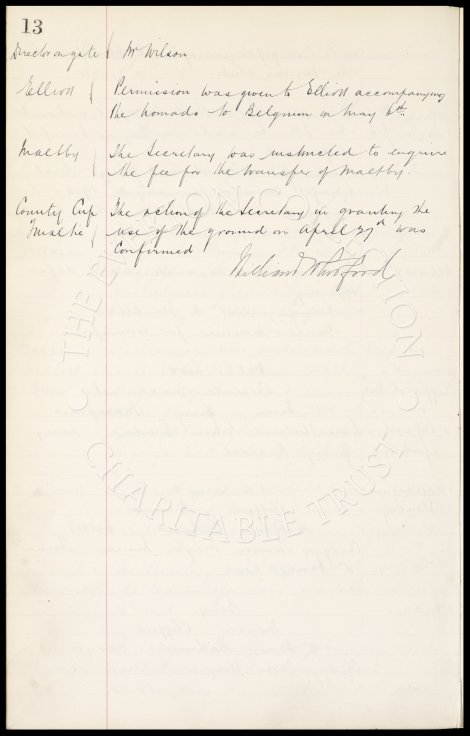 13
Director on gate { Mr Wilson
Elliott { Permission was given to Elliott accompanying
the Nomads to Belgium on May 6th.
Maltby { The Secretary was instructed to enquire
the fee for the transfer of Maltby.
County Cup { The action of the Secretary in granting the
use of the ground on April 27th was
Confirmed
THE CHARITABLE TRUST